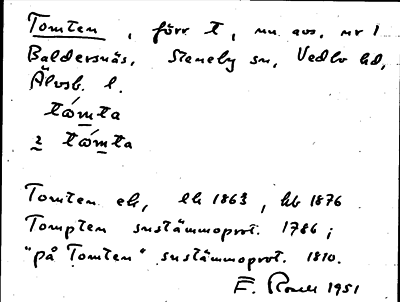 Tomten, förr t, nu avs. nr 1
Baldersnäs, Steneby sn, Vedbo hd,
Älvsb. l.
tómta
2 tómta
Tomten ek, lk 1863, hb 1876
Tompten sustämmoprot. 1786;
"på Tomten" sustämmoprot. 1810.
F. 1951